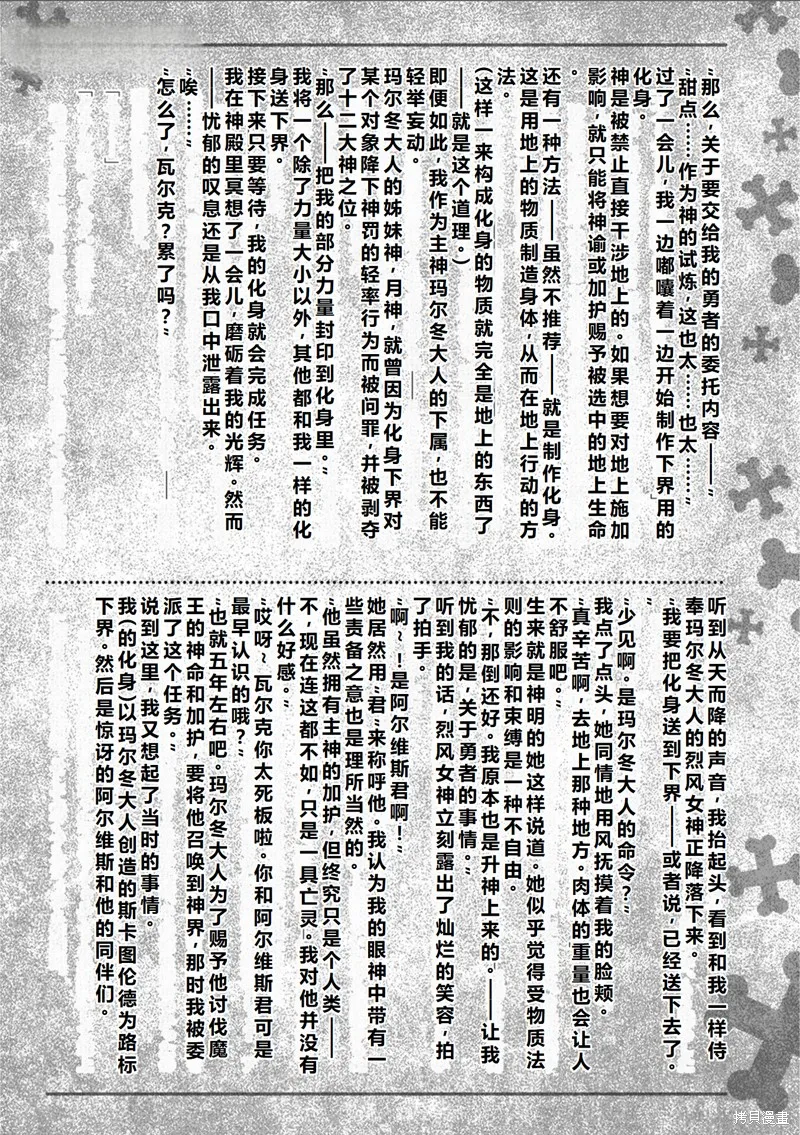 “那么，关于要交给我的勇者的委托内容——”
“甜点……作为神的试炼，这也太……也太……”
过了一会儿，我一边嘟囔着一边开始制作下界用的
化身。
神是被禁止直接干涉地上的。如果想要对地上施加
影响，就只能将神谕或加护赐予被选中的地上生命
。
还有一种方法——虽然不推荐——就是制作化身。
这是用地上的物质制造身体，从而在地上行动的方
法。
(这样一来构成化身的物质就完全是地上的东西了
——就是这个道理。)
即便如此，我作为主神玛尔冬大人的下属，也不能
轻举妄动。
玛尔冬大人的姊妹神，月神，就曾因为化身下界对
某个对象降下神罚的轻率行为而被问罪，并被剥夺
了十二大神之位。
“那么——把我的部分力量封印到化身里。”
我将一个除了力量大小以外，其他都和我一样的化
身送下界。
接下来只要等待，我的化身就会完成任务。
我在神殿里冥想了一会儿，磨砺着我的光辉。然而
——忧郁的叹息还是从我口中泄露出来。
“唉……”
“怎么了，瓦尔克？累了吗？”
听到从天而降的声音，我抬起头，看到和我一样侍
奉玛尔冬大人的烈风女神正降落下来。
“我要把化身送到下界——或者说，已经送下去了。
”
“少见啊。是玛尔冬大人的命令？”
我点了点头，她同情地用风抚摸着我的脸颊。
“真辛苦啊，去地上那种地方。肉体的重量也会让人
不舒服吧。”
生来就是神明的她这样说道。她似乎觉得受物质法
则的影响和束缚是一种不自由。
“不，那倒还好。我原本也是升神上来的。——让我
忧郁的是，关于勇者的事情。”
听到我的话，烈风女神立刻露出了灿烂的笑容，拍
了拍手。
“啊~！是阿尔维斯君啊！”
她居然用“君”来称呼他。我认为我的眼神中带有一
些责备之意也是理所当然的。
“他虽然拥有主神的加护，但终究只是个人类——
不，现在连这都不如，只是一具亡灵。我对他并没有
什么好感。”
“哎呀~瓦尔克你太死板啦。你和阿尔维斯君可是
最早认识的哦？”
“也就五年左右吧。玛尔冬大人为了赐予他讨伐魔
王的神命和加护，要将他召唤到神界，那时我被委
派了这个任务。”
说到这里，我又想起了当时的事情。
我(的化身)以玛尔冬大人创造的斯卡图伦德为路标
下界。然后是惊讶的阿尔维斯和他的同伴们。
拷贝漫畫